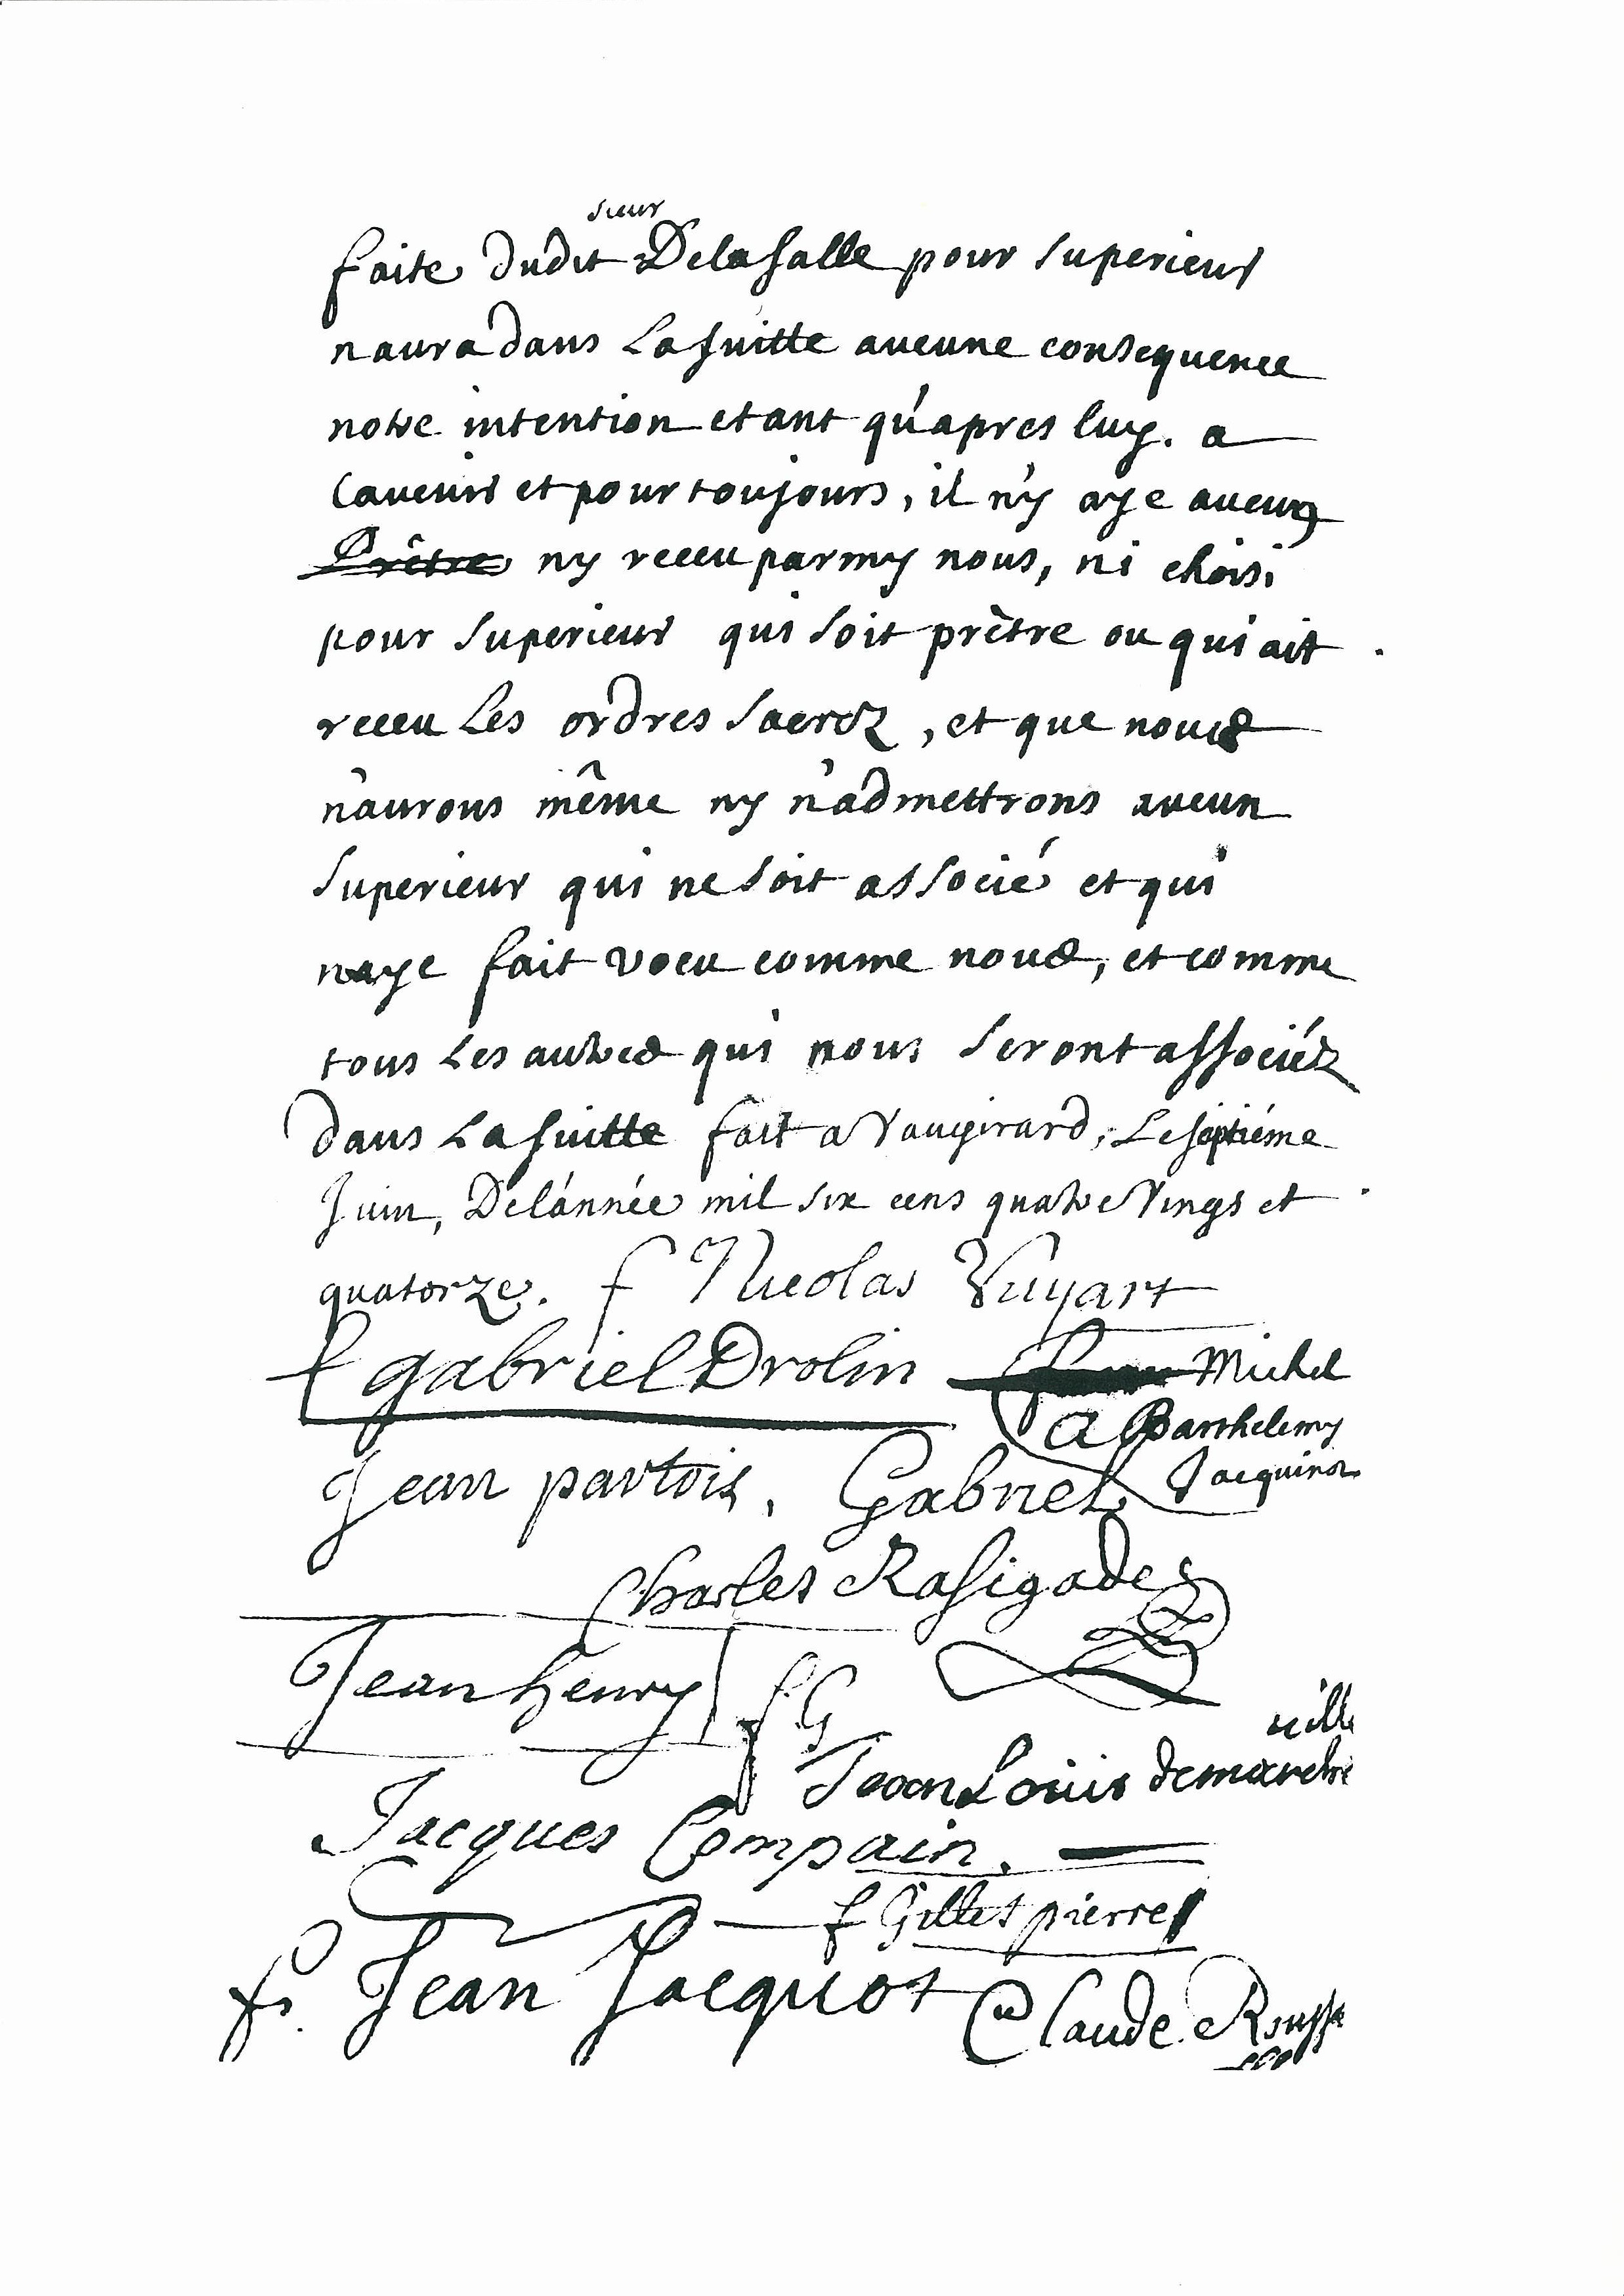 sieur
faite dudit Delasalle pour superieur
naura dans La suitte aucune consequence
notre intention etant qu'apres luy. a
Lavenir et pour toujours, il n'y aye aucun
Prêtre ny receu parmy nous, ni choisi
pour superieur qui soit prêtre ou qui ait
receu Les ordres sacrez, et que nous
n'aurons même ny n'admettrons aucun
superieur qui ne soit associé et qui
naye fait voeu comme nous, et comme
tous Les autres qui nous seront associéz
dans La suitte fait a Vaugirard, Le septiéme
Juin, De l'année mil six cens quatre Vings et
quatorze. f Nicolas Vuyart
f gabriel Drolin Michel
Barthelemy
Jean partois, Gabriel Jacquinot
Charles Rasigade
Jean henry f G
ville
Jean Louis demarche
Jacques Compain.
f Gillet pierre
fr. Jean Jacquot Claude Rousse